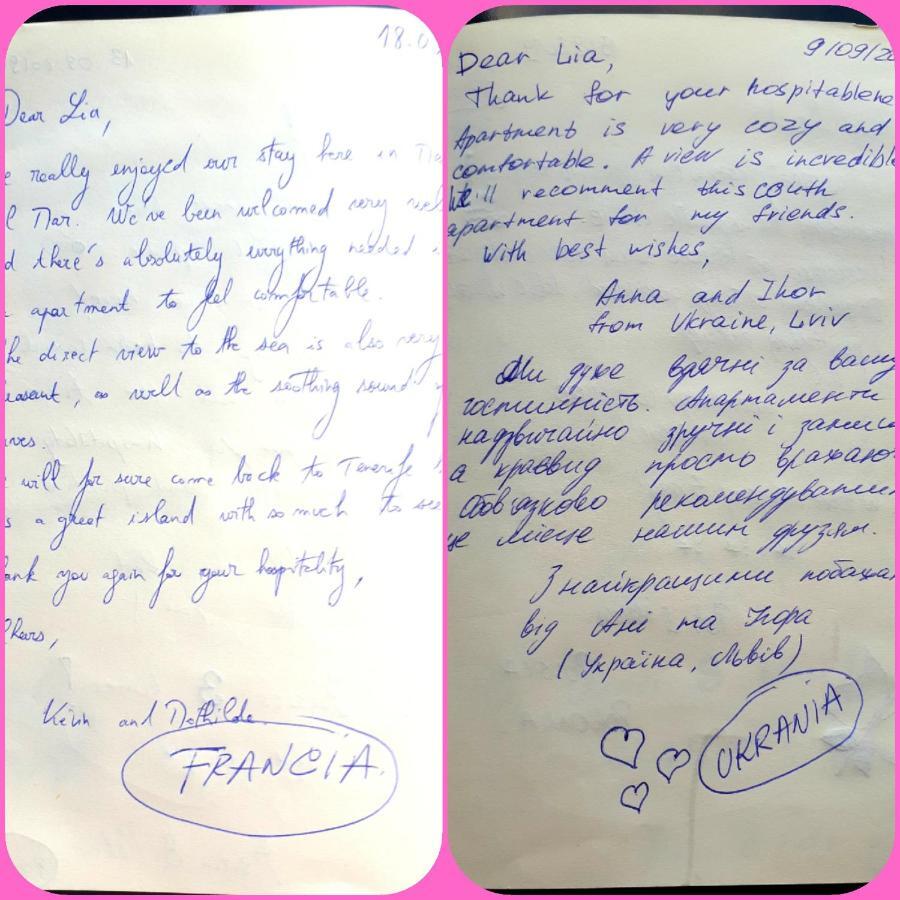 18.0
Dear Lia,
really enjoyed our stay here in
Mar. We've been welcomed very
there's absolutely everything needed
apartment to feel comfortable.
he direct view to the sea is also very
easant, as well as the soothing sound
ves.
will for sure come back to Tenerife
s a great island with so much to see
ank you again for your hospitality,
Kévin and
FRANCIA.
9/09/20
Dear Lia,
Thank for your hospitablene
Apartment is very cozy and
comfortable. A view is incredibl
We'll recomment this
apartment for my friends.
With best wishes,
Anna and Ihor
from Ukraine, Lviv
Ми дуже вдячні за вашу
гостинність. Апартаменти
надзвичайно зручні і
а краєвид просто вражаю
Обов'язково рекомендуватим
це місце нашим друзям.
З найкращими побажа
від Ані та Ігора
(Україна, Львів)
UKRANIA